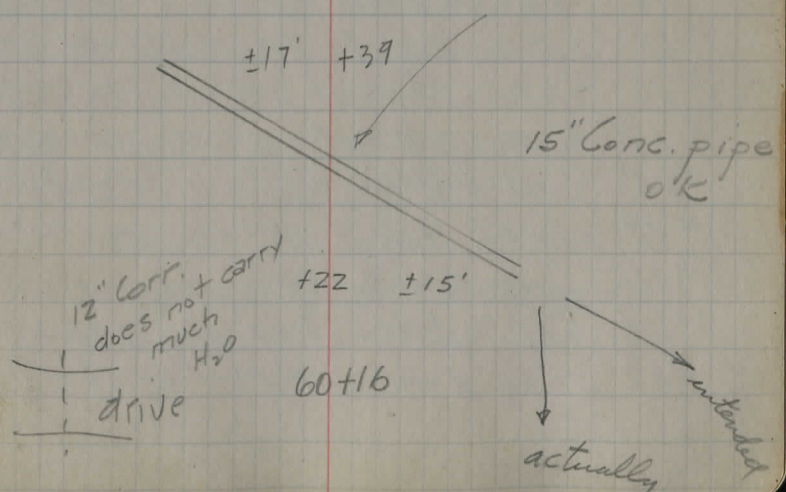 ±17' +39
15" Conc. pipe
OK
12" Corr.
does not carry
much
H2O
+22 ±15'
drive
60+16
intended
actually